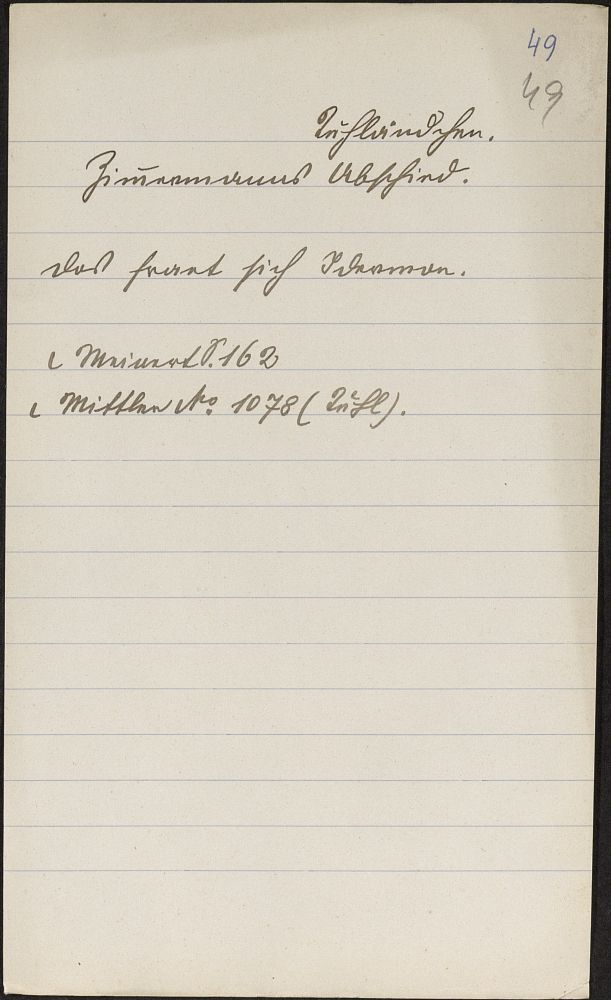 49
49
Kuhländchen.
Zim̄ermanns Abschied.
Das fraet sich Iderman.
Meinert S. 162
Mittler No 1078 (Kuhl).